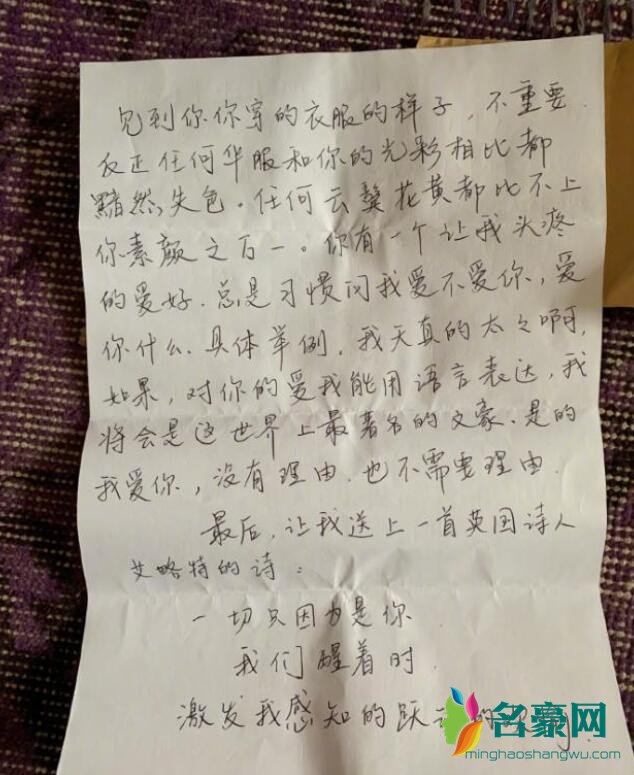 见到你你穿的衣服的样子，不重要.
反正任何华服和你的光彩相比都
黯然失色。任何云鬓花黄都比不上
你素颜之万一。你有一个让我头疼
的爱好.总是习惯问我爱不爱你，爱
你什么.具体举例.我天真的太太啊，
如果，对你的爱我能用语言表达，我
将会是这世界上最著名的文豪.是的
我爱你，没有理由.也不需要理由.
最后，让我送上一首英国诗人
艾略特的诗：
一切只因为是你
我们醒着时.
激发我感知的跃动的
名豪网
minghaoshangwu.com